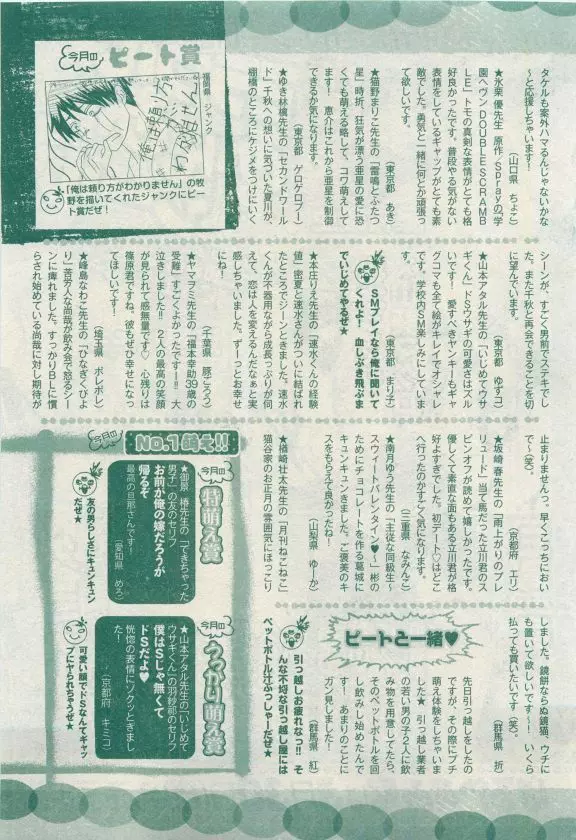 タケルも案外ハマるんじゃないかな
～と応援しちゃいます！
（山口県　ちょこ）
★氷栗 優先生 原作：Sprayの『学
園ヘヴン DOUBLE SCRAMB
LE！』トモの真剣な表情がとても格
好良かったです。普段やる気がない
表情をしているギャップがとても素
敵でした。勇気と一緒に何とか頑張っ
て欲しいです。
（東京都　あき）
★猫野まりこ先生の『雷鳴とふたつ
星』時折、狂気が漂う亜星の愛に恐
くても萌える略して、コワ萌えして
ます！　恵介はこれから亜星を制御
できるか気になります。
（東京都　ゲロゲロブー）
★ゆき林檎先生の『セカンドワール
ド』千秋への想いに気づいた夏川が、
棚橋のところにケジメをつけにいく
今月の
ピート賞
福岡県　ジャンク
俺は頼り方
わかりません
「俺は頼り方がわかりません」の牧
野を描いてくれたジャンクにピー
ト賞だぜ！
シーンが、すごく男前でステキでし
た。また千秋と再会できることを切
に望んでいます。
（東京都　ゆずコ）
★山本アタル先生の『いじめてウサ
ギくん』ドSウサギの可愛さはズル
いです！　愛すべきヤンキーもギャ
グコマも全て絵がキレイでオシャレ
です。学校内SM楽しみにしていま
す。
（東京都　まり子）
SMプレイなら俺に聞いて
くれよ！　血しぶき飛ぶま
でいじめてやるぜ★
★本庄りえ先生の『速水くんの経験
値』密夏と速水さんがついに結ばれ
たところでジーンときました。速水
くんが不器用ながら成長っぷりが伺
えて、恋は人を変えるんだなぁと実
感しちゃいました。ずーっとお幸せ
にね！
（千葉県　豚ごろう）
★ヤマヲミ先生の『福本幸助39歳の
受難』すごくよかったです―!!　大
泣きしました!!　2人の最高の笑顔
が見られて感無量です♡　心残りは
篠原君ですね。彼もぜひ幸せになっ
てほしいです！
（埼玉県　ポレポレ）
★峰島なわこ先生の『ひなぎくびよ
り』苦労人な尚哉が飲み会で怒るシー
ンに痺れました。すっかりBLに慣
らされ始めている尚哉に対し期待が
止まりませんっ。早くこっちにおい
で～（笑）。
（京都府　エリ）
★坂崎 春先生の『雨上がりのプレ
リュード』当て馬だった立川君のス
ピンオフが読めて嬉しかったです。
優しくて素直な面もある立川君が格
好よすぎでした。初デートへはどこ
へ行ったのかすごく気になります。
（三重県　なみんこ）
★南月ゆう先生の『主従な同級生～
スウィートバレンタイン♥～』彬の
ためにチョコレートを作る葛城に
キュンキュンきました。ご褒美のキ
スをもらえて良かったね！
（山梨県　ゆーか）
★楢崎壮太先生の『月刊ねこねこ』
猫谷家のお正月の雰囲気にほっこり
しました。鏡餅ならぬ鏡猫、ウチに
も置いて欲しいです～！　いくら
払っても買いたいです（笑）。
（群馬県　折）
ピートと一緒♥
先日引っ越しをしたの
ですが、その際にプチ
萌え体験をしちゃいま
した★　引っ越し業者
の若い男の子2人に飲
み物を用意してたら、
そのペットボトルを回
し飲みし始めたんで
す！　あまりのことに
ガン見しました！
（群馬県　紅）
引っ越しお疲れなっ!!　そ
んな不埒な引っ越し屋には
ペットボトル汁ぶっしゃーだぜ★
今月の
No.1萌え!!
今月の
特萌え賞
★御景 椿先生の『できちゃった
男子』の友のセリフ
お前が俺の嫁だろうが
帰るぞ
最高の旦那さんです！
（愛知県　めろ）
友の男らしさにキュンキュン
だぜ★
今月の
うっかり萌え賞
★山本アタル先生の『いじめて
ウサギくん』の羽紗前のセリフ
僕はSじゃ無くて
ドSだよ♥
恍惚の表情にゾクッときまし
た！
（京都府　キミコ）
可愛い顔でドSなんてギャッ
プにヤられちゃうぜ★